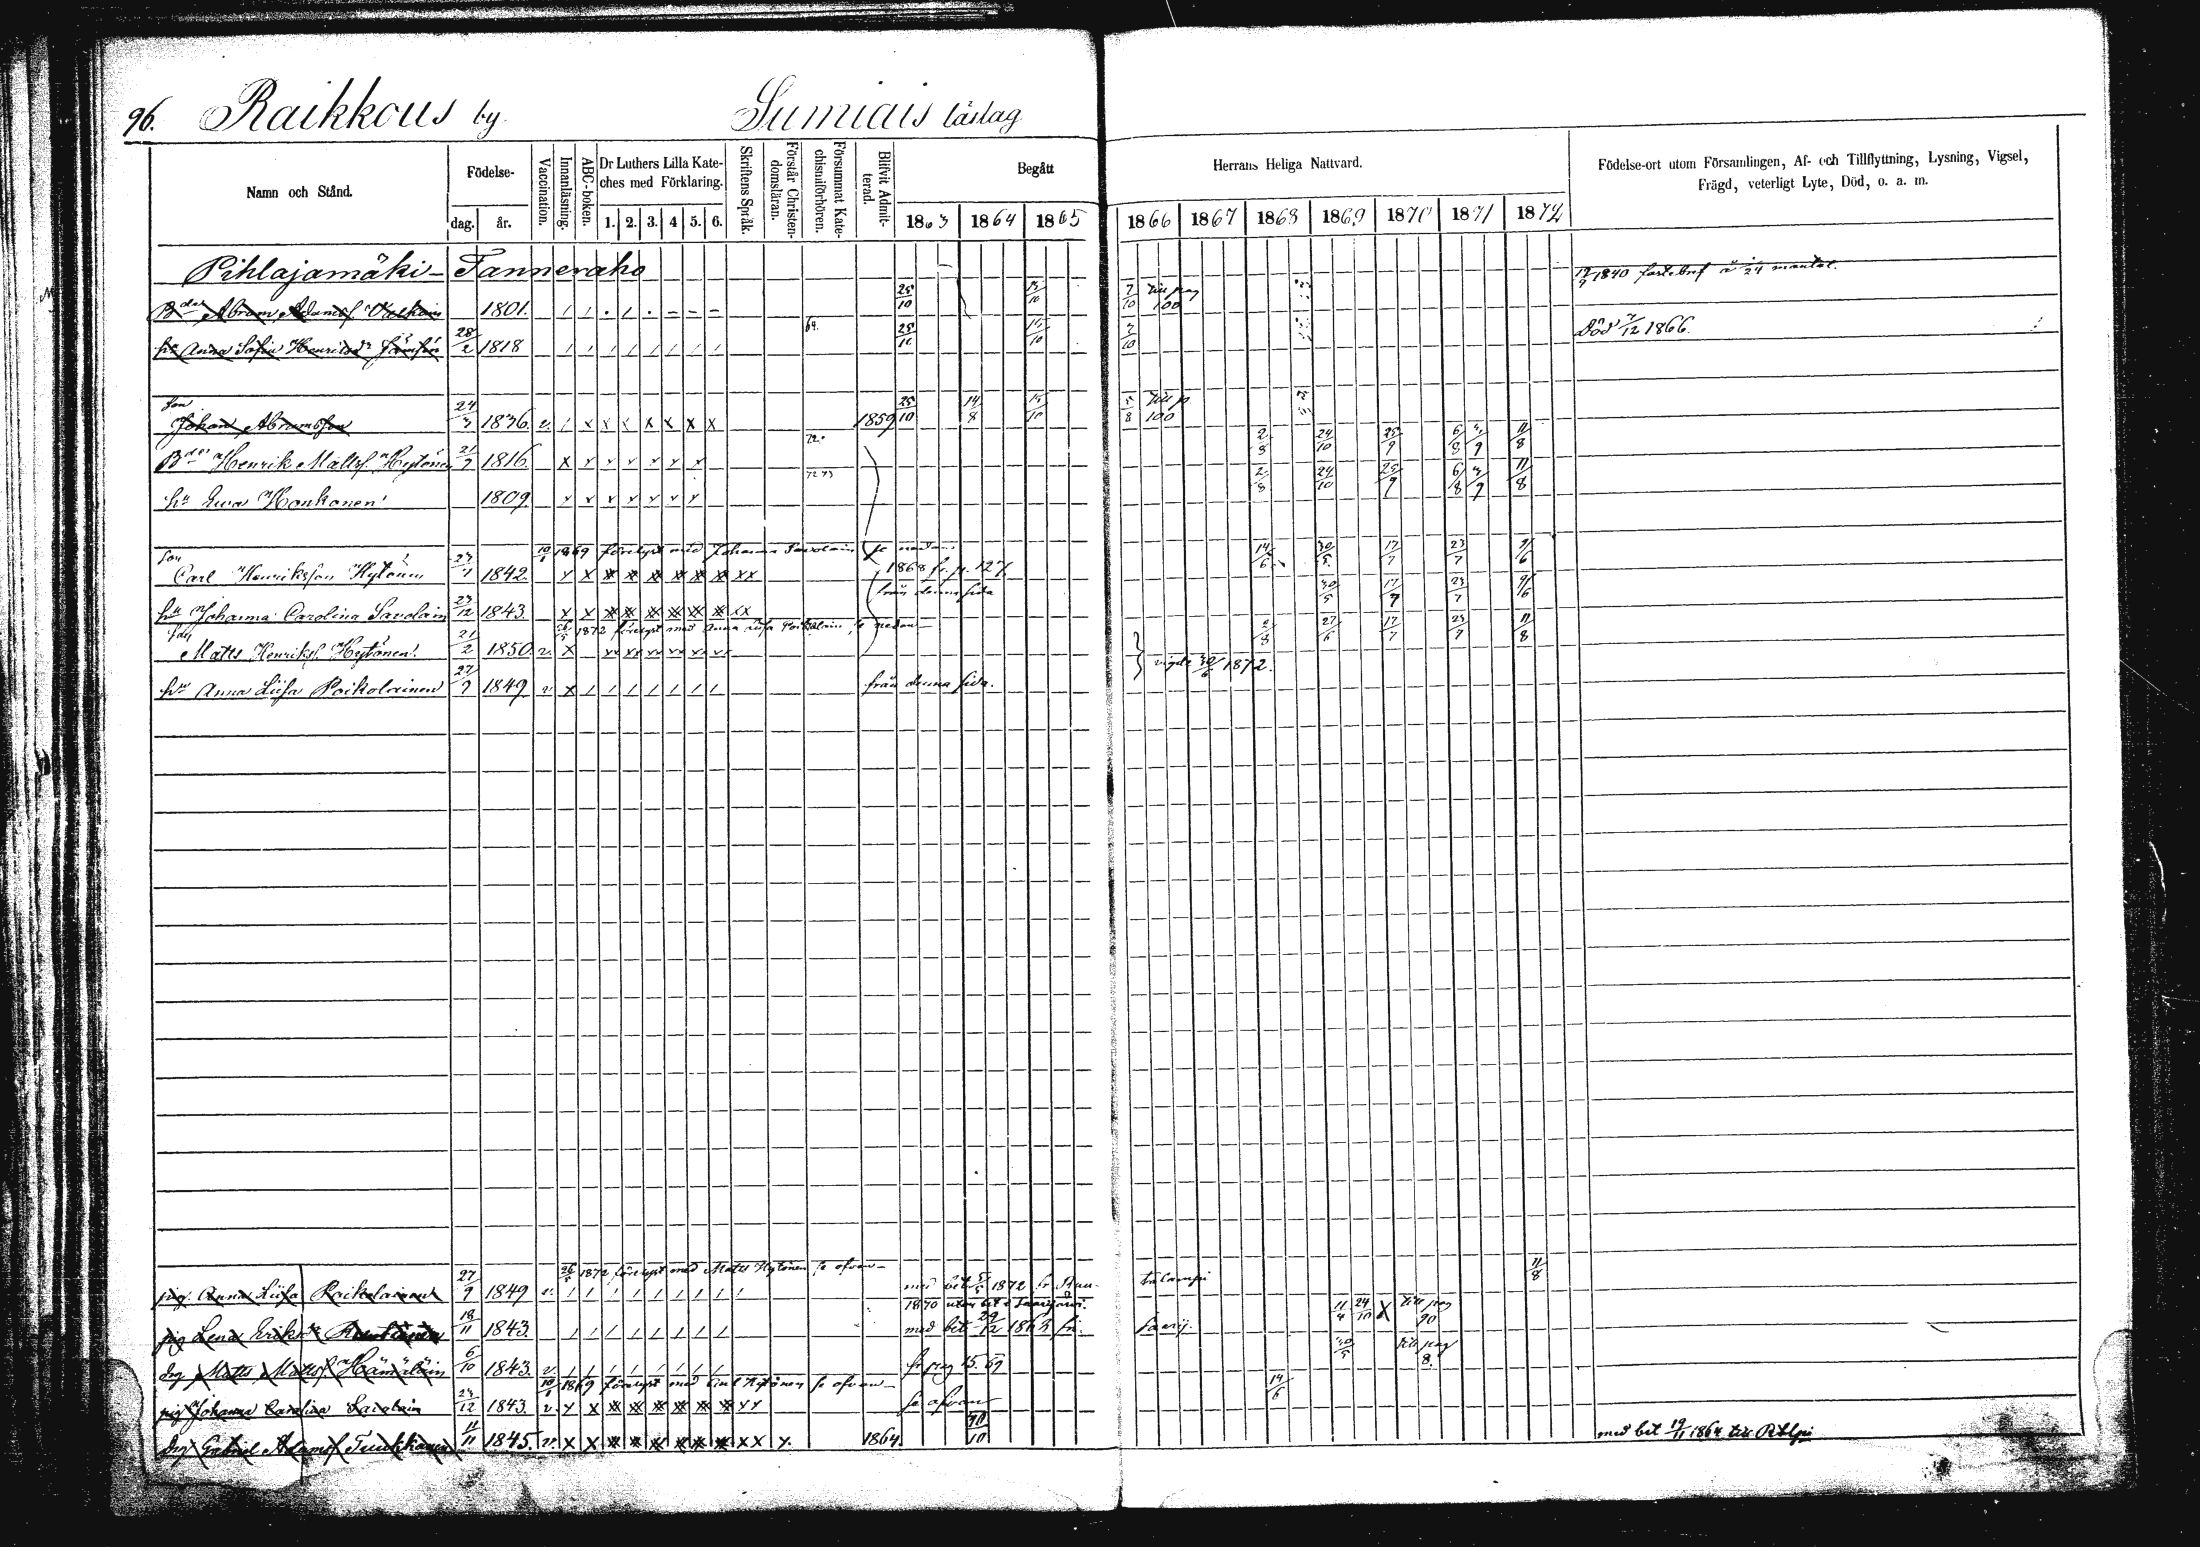 96. Raikkous by Sumiais läslag
Namn och Stånd. Födelse- dag. år. Vaccination. Innanläsning. ABC-boken. Dr Luthers Lilla Kateches med Förklaring. 1. 2. 3. 4 5. 6. Skriftens Språk. Förstår Christendomsläran. Försummat Katechismiförhören. Blifvit Admitterad. Begått 1863 1864 1865
Herrans Heliga Nattvard. 1866 1867 1868 1869 1870 1871 1872 Födelse-ort utom Församlingen, Af- och Tillflyttning, Lysning, Vigsel, Frägd, veterligt Lyte, Död, o. a. m.
Pihlajamäki – Tanneraho 1840 fastebref å 1/24 mantal.
Bden Abram Adamsf. 1801. 25/10 15/10 7/10 till pag 100
hu Anna Sofia Henriksdr 28/2 1818 64. 25/10 15/10 3/10 Död 7/12 1866.
Son
Johan Abramsson 24/3 1836. v. 1859 25/10 14/8 15/10 5/8 till p 100
Bden Henrik Mattsf. Hytönen 21/7 1816. 72. 2/8 24/10 25/9 6/8 3/9 11/8
hu Ewa Honkonen 1809. 72 73 2/8 24/10 25/9 6/8 3/9 11/8
Son 10/1 1869 förelyst med Johanna Savolain se nedan
Carl Henriksson Hytönen 23/1 1842. 1868 fr. p. 127 14/6 30/5 17/7 23/7 9/6
hu Johanna Carolina Savolain 23/12 1843. från denna sida 30/5 17/7 23/7 9/6
Son 26/5 1872 förelyst med Anna Liisa Poikolain, se nedan
Matts Henriksf. Hytönen 21/2 1850. v. 2/8 27/6 17/7 23/7 11/8
vigde 30/6 1872.
hu Anna Liisa Poikolainen 27/9 1849 v. från denna sida.
26/5 1872 förelyst med Matts Hytönen se ofvan
pig. Anna Liisa Poikolainen 27/9 1849 v. med bet 5/5 1872 fr Rautalampi 11/8
1870 utan bet i Saarijärvi.
pig Lena Eriksdr 18/11 1843. med bet 29/12 1863 fr. Saarij. 11/4 24/10 X till pag 90
drg Matts Mattsf. Hämäläin 6/10 1843. v. fr pag 15. 69 30/5 till pag 8.
10/1 1869 förelyst med Carl Hytönen se ofvan
pig Johanna Carolina Savolain 23/12 1843. v. se ofvan 14/6
drg Gabriel Adamsf Tuukkanen 11/11 1845. v. 1864. 30/10 med bet 19/11 1864 till Pihlpi